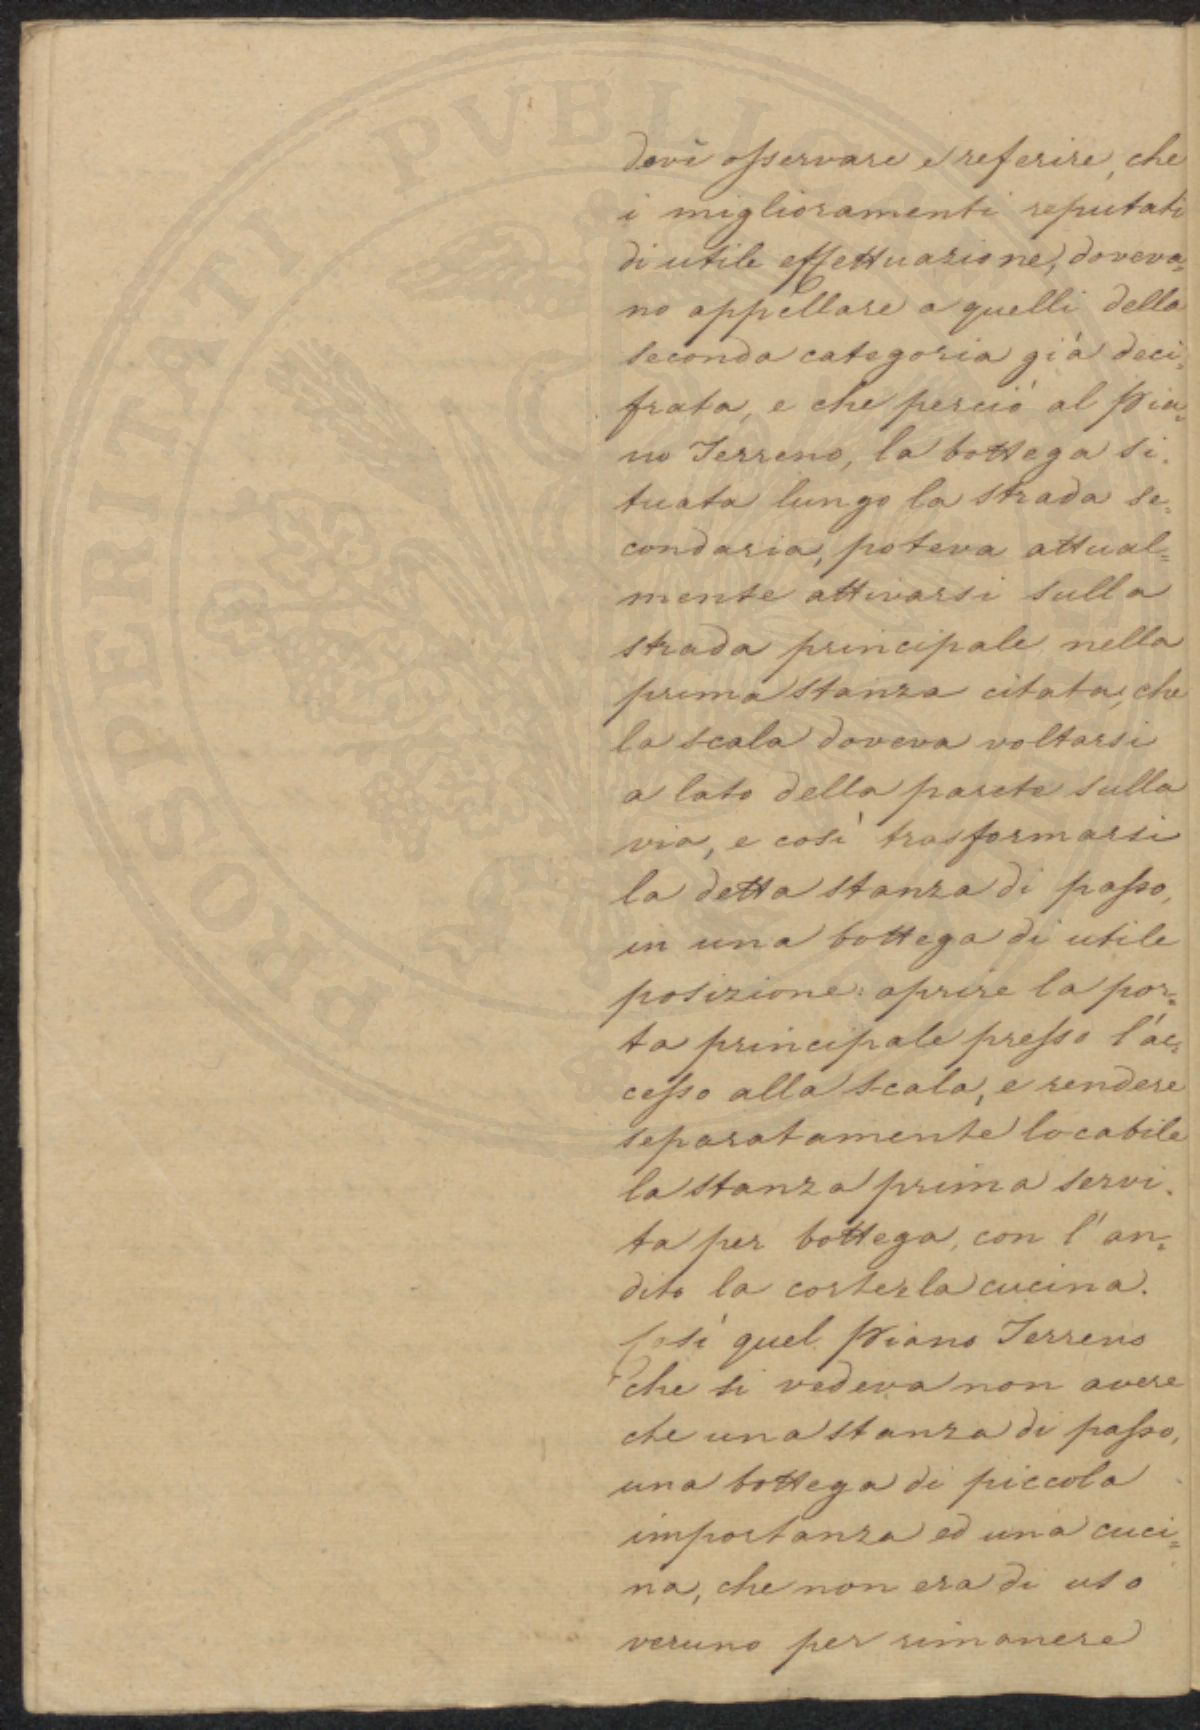 dovì osservare e referire, che
i miglioramenti reputati
di utile effettuazione, doveva=
no appellare a quelli della
seconda categoria già deci=
frata, e che perciò al Pia=
no Terreno, la bottega si=
tuata lungo la strada se=
condaria, poteva attual=
mente attivarsi sulla
strada principale nella
prima stanza citata, che
la scala doveva voltarsi
a lato della parete sulla
via, e così trasformarsi
la detta stanza di passo,
in una bottega di utile
posizione: aprire la por=
ta principale presso l'ac=
cesso alla scala, e rendere
separatamente locabile
la stanza prima servi=
ta per bottega, con l'an=
dito la corte e la cucina.
Così quel Piano Terreno
che si vedeva non avere
che una stanza di passo,
una bottega di piccola
importanza ed una cuci=
na, che non era di uso
veruno per rimanere
PROSPERITATI PVBLICAE